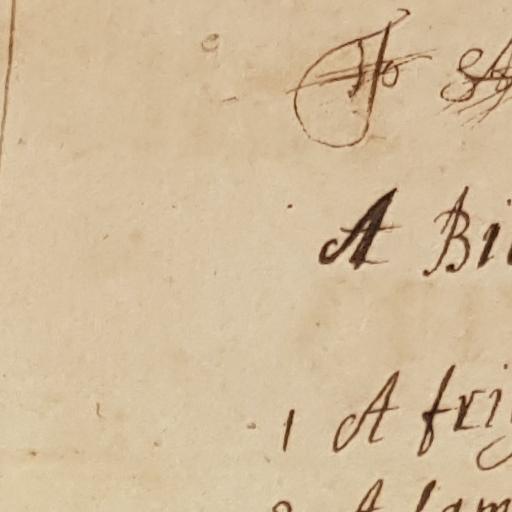 To
A Bi
1 A fri
2 A lam